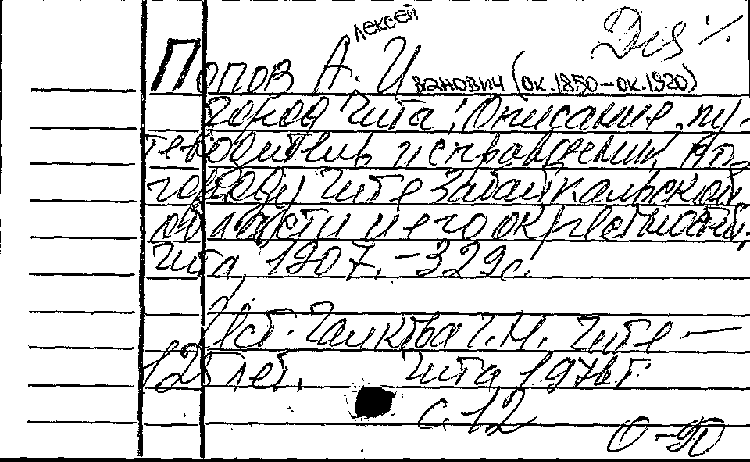 лексей
Попов А. Иванович (ок.1850–ок.1920)
город Чита: Описание, пу-
теводитель и справочник
городу Чите Забайкальской
области и его окрестностей.
Чита, 1907. – 329 с.
Ист: Чите –
125 лет. Чита, 1976 г.
с. 12
0-90